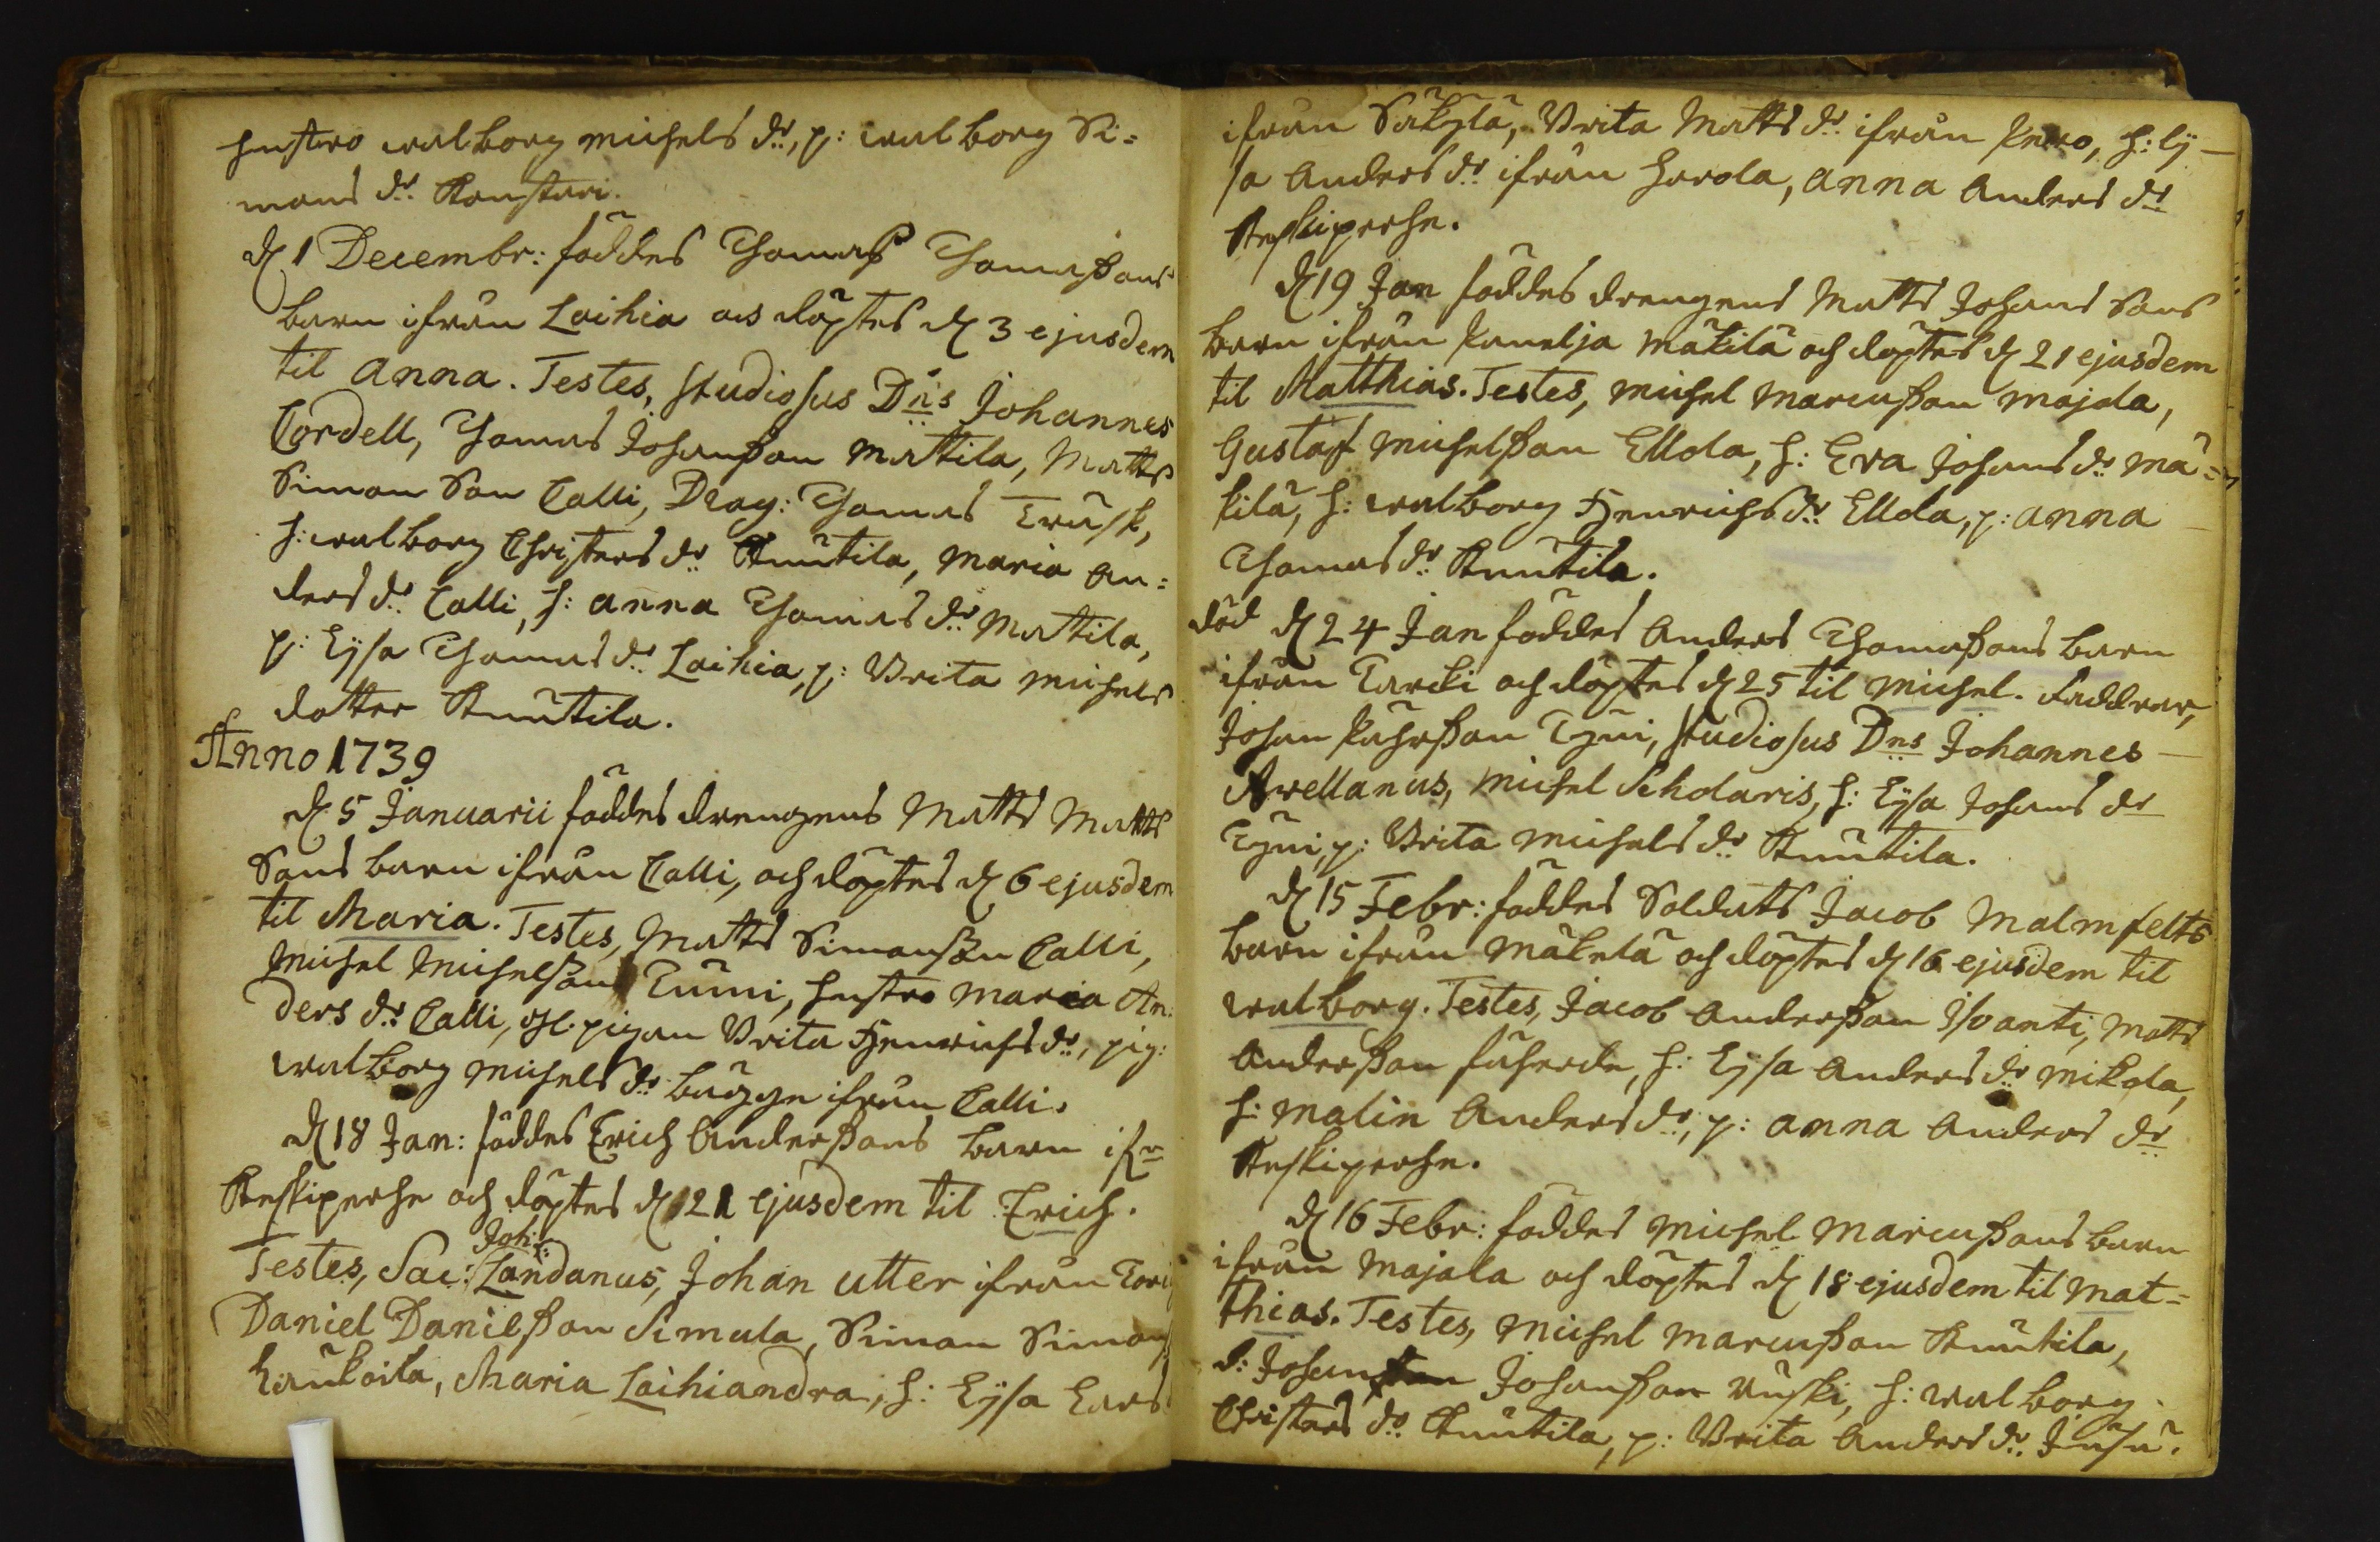 hustro walborg michels dr:, p: walborg Si=
mons dr: Konstari.
d 1 Decembr: föddes Thomas Thomaßons
barn ifrån Laihia och döptes d 3 ejusdem
til Anna. Testes, studiosus Dns Johannes
Cordell, Thomas Johanßon Mattila, Matts
Simon Son Calli, Drag: Thomas Träsk,
h: walborg Christers dr: Knutila, Maria An=
ders dr: Calli, h: Anna Thomas dr: Mattila,
p: Lysa Thomas dr: Laihia, p: Brita michels
dotter Knutila.
Anno 1739
d 5 Januarii föddes drengens Matts Matts
Sons barn ifrån Calli, och döptes d 6 ejusdem
til Maria. Testes, Matts Simonson Calli,
Michel Michelson Tumi, hustro Maria An:
ders dr: Calli, pigan Brita Henrichs dr:, pig:
walborg michels dr: bägge ifrån Calli.
d 18 Jan: föddes Erich Anderßons barn ifr
Keskiperhe och döptes d 21 ejusdem til Erich.
Joh:
Testes, Sac: Landanus, Johan Utter ifrån
Daniel Danielßon Simula, Simon Simons
Haukoila, Maria Laihiandra, h: Lysa Lars
ifrån Säkylä, Brita Matts dr: ifrån Knero, h: Ly-
sa Anders dr: ifrån Herola, Anna Anders dr:
Keskiperhe.
d 19 Jan föddes drengens Matts Johans Sons
barn ifrån Panelja Mäkilä och döptes d 21 ejusdem
til Matthias. Testes, michel marcußon Majola,
Gustaf michelßon Ellola, h: Eva Johans dr: Mä=
kilä, h: walborg Henrichs dr: Ellola, p: Anna
Thomas dr: Knutila.
död d 24 Jan föddes Anders Thomaßons barn
ifrån Tarcki och döptes d 25 til Michel. Faddrar,
Johan Påhrßon Tyni, studiosus Dns Johannes
Avellanus, michel Scholaris, h: Lysa Johans dr:
Tyni, p: Brita michels dr: Knutila.
d 15 Febr: föddes Soldats Jacob Malmfelts
barn ifrån Mäkelä och döptes d 16 ejusdem til
walborg. Testes, Jacob Anderßon Isoanti, Matts
Anderßon h: Lysa Anders dr: Mikola,
h: Malin Anders dr:, p: Anna Anders dr:
Keskiperhe.
d 16 Febr: föddes Michel Marcußons barn
ifrån Majola och döptes d 18 ejusdem til Mat=
thias. Testes, Michel Marcußon Knutila,
d: Johan Johanßon Ruski, h: walborg
Christers dr: Knutila, p: Brita Anders dr: Juusu.